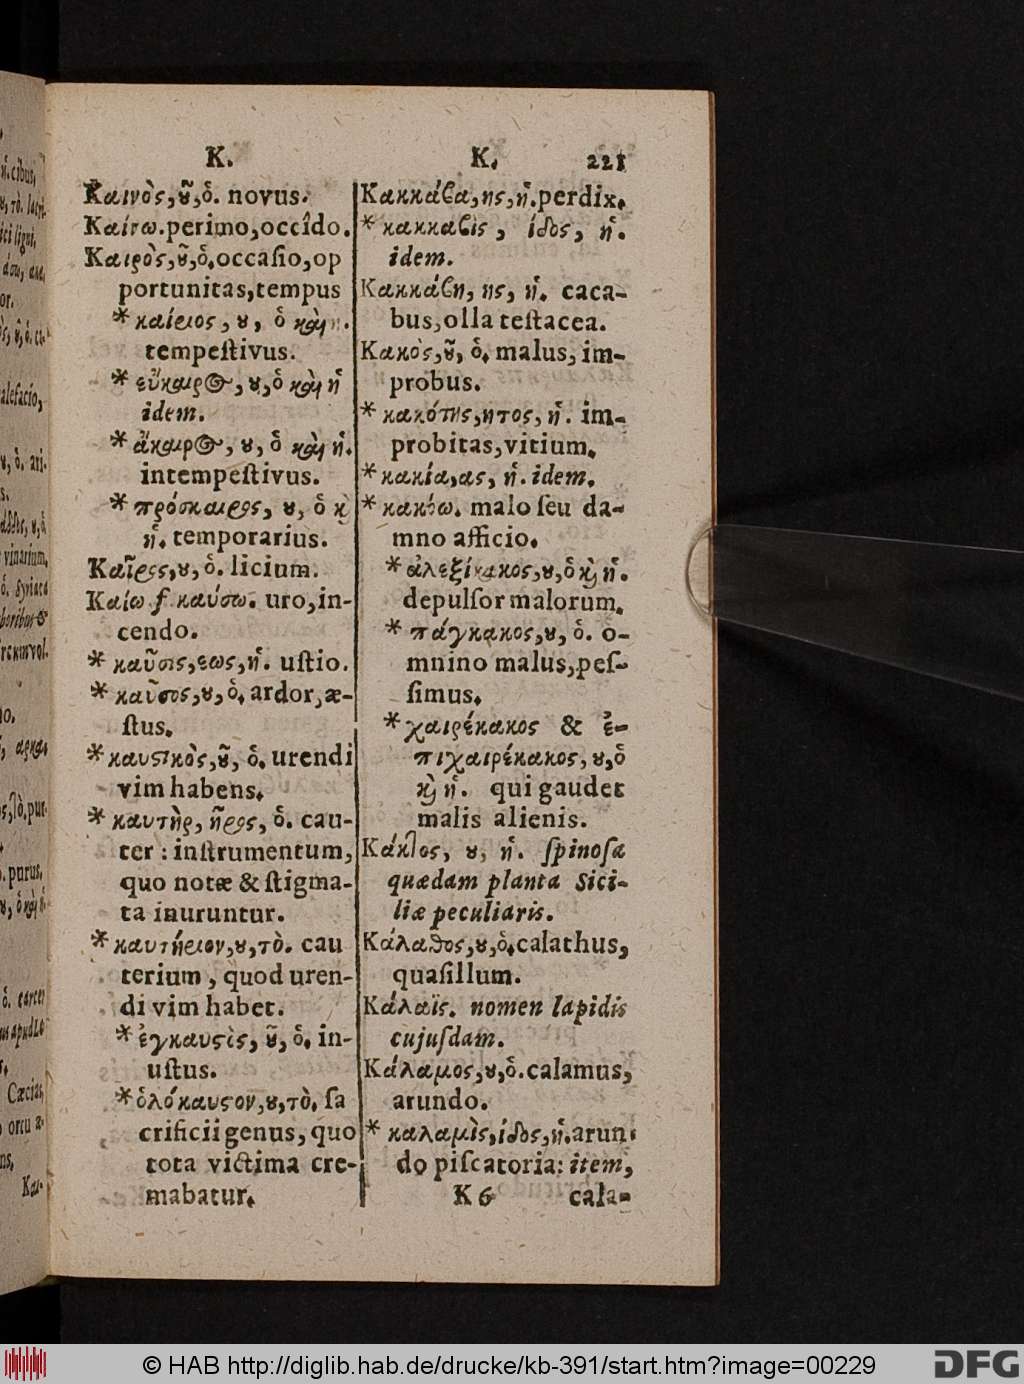 K.
Καινὸς,ȣ͂,ὁ. novus.
Καίνω.perimo,occîdo.
Καιρὸς,ȣ͂,ὁ.occaſio,op
portunitas,tempus
* καίριος, ȣ, ὁ καὶ ἡ.
tempeſtivus.
* εὔκαιρος, ȣ,ὁ καὶ ἡ
idem.
* ἄκαιρος, ȣ, ὁ καὶ ἡ.
intempeſtivus.
* πρόσκαιρος, ȣ, ὁ κὶ
ἡ. temporarius.
Καῖρος,ȣ, ὁ. licium.
Καίω f καύσω. uro,in-
cendo.
* καῦσις,εως,ἡ. uſtio.
* καῦσος,ȣ,ὁ. ardor,æ-
ſtus.
* καυϛικὸς,ȣ͂, ὁ. urendi
vim habens.
* καυτὴρ, ῆρος, ὁ. cau-
ter : inſtrumentum,
quo notæ & ſtigma-
ta inuruntur.
* καυτήριον,ȣ,τὸ. cau
terium, quod uren-
di vim habet.
* ἐγκαυϛὶς, ȣ͂, ὁ. in-
uſtus.
* ὁλόκαυϛον,ȣ,τὸ. ſa
crificii genus, quo
tota victima cre-
mabatur.
K. 221
Κακκάϐα,ης,ἡ.perdix.
* κακκαϐὶς, ίδος, ἡ.
idem.
Κακκάϐη, ης, ἡ. caca-
bus,olla teſtacea.
Κακὸς,ȣ͂, ὁ. malus, im-
probus.
* κακότης,ητος, ἡ. im-
probitas,vitium.
* κακία,ας, ἡ. idem.
* κακόω. malo ſeu da-
mno afficio.
* ἀλεξίκακος,ȣ,ὁ κὶ ἡ.
depulſor malorum.
* πάγκακος,ȣ, ὁ. o-
mnino malus,peſ-
ſimus.
* χαιρέκακος & ἐ-
πιχαιρέκακος, ȣ,ὁ
κὶ ἡ. qui gaudet
malis alienis.
Κάκτος, ȣ, ἡ. ſpinoſa
quædam planta Sici-
liæ peculiaris.
Κάλαθος,ȣ,ὁ.calathus,
quaſillum.
Κάλαϊς. nomen lapidis
cujuſdam.
Κάλαμος,ȣ,ὁ.calamus,
arundo.
* καλαμὶς,ίδος,ἡ.arun-
do piſcatoria: item,
K 6 cala-
© HAB http://diglib.hab.de/drucke/kb-391/start.htm?image=00229
DFG